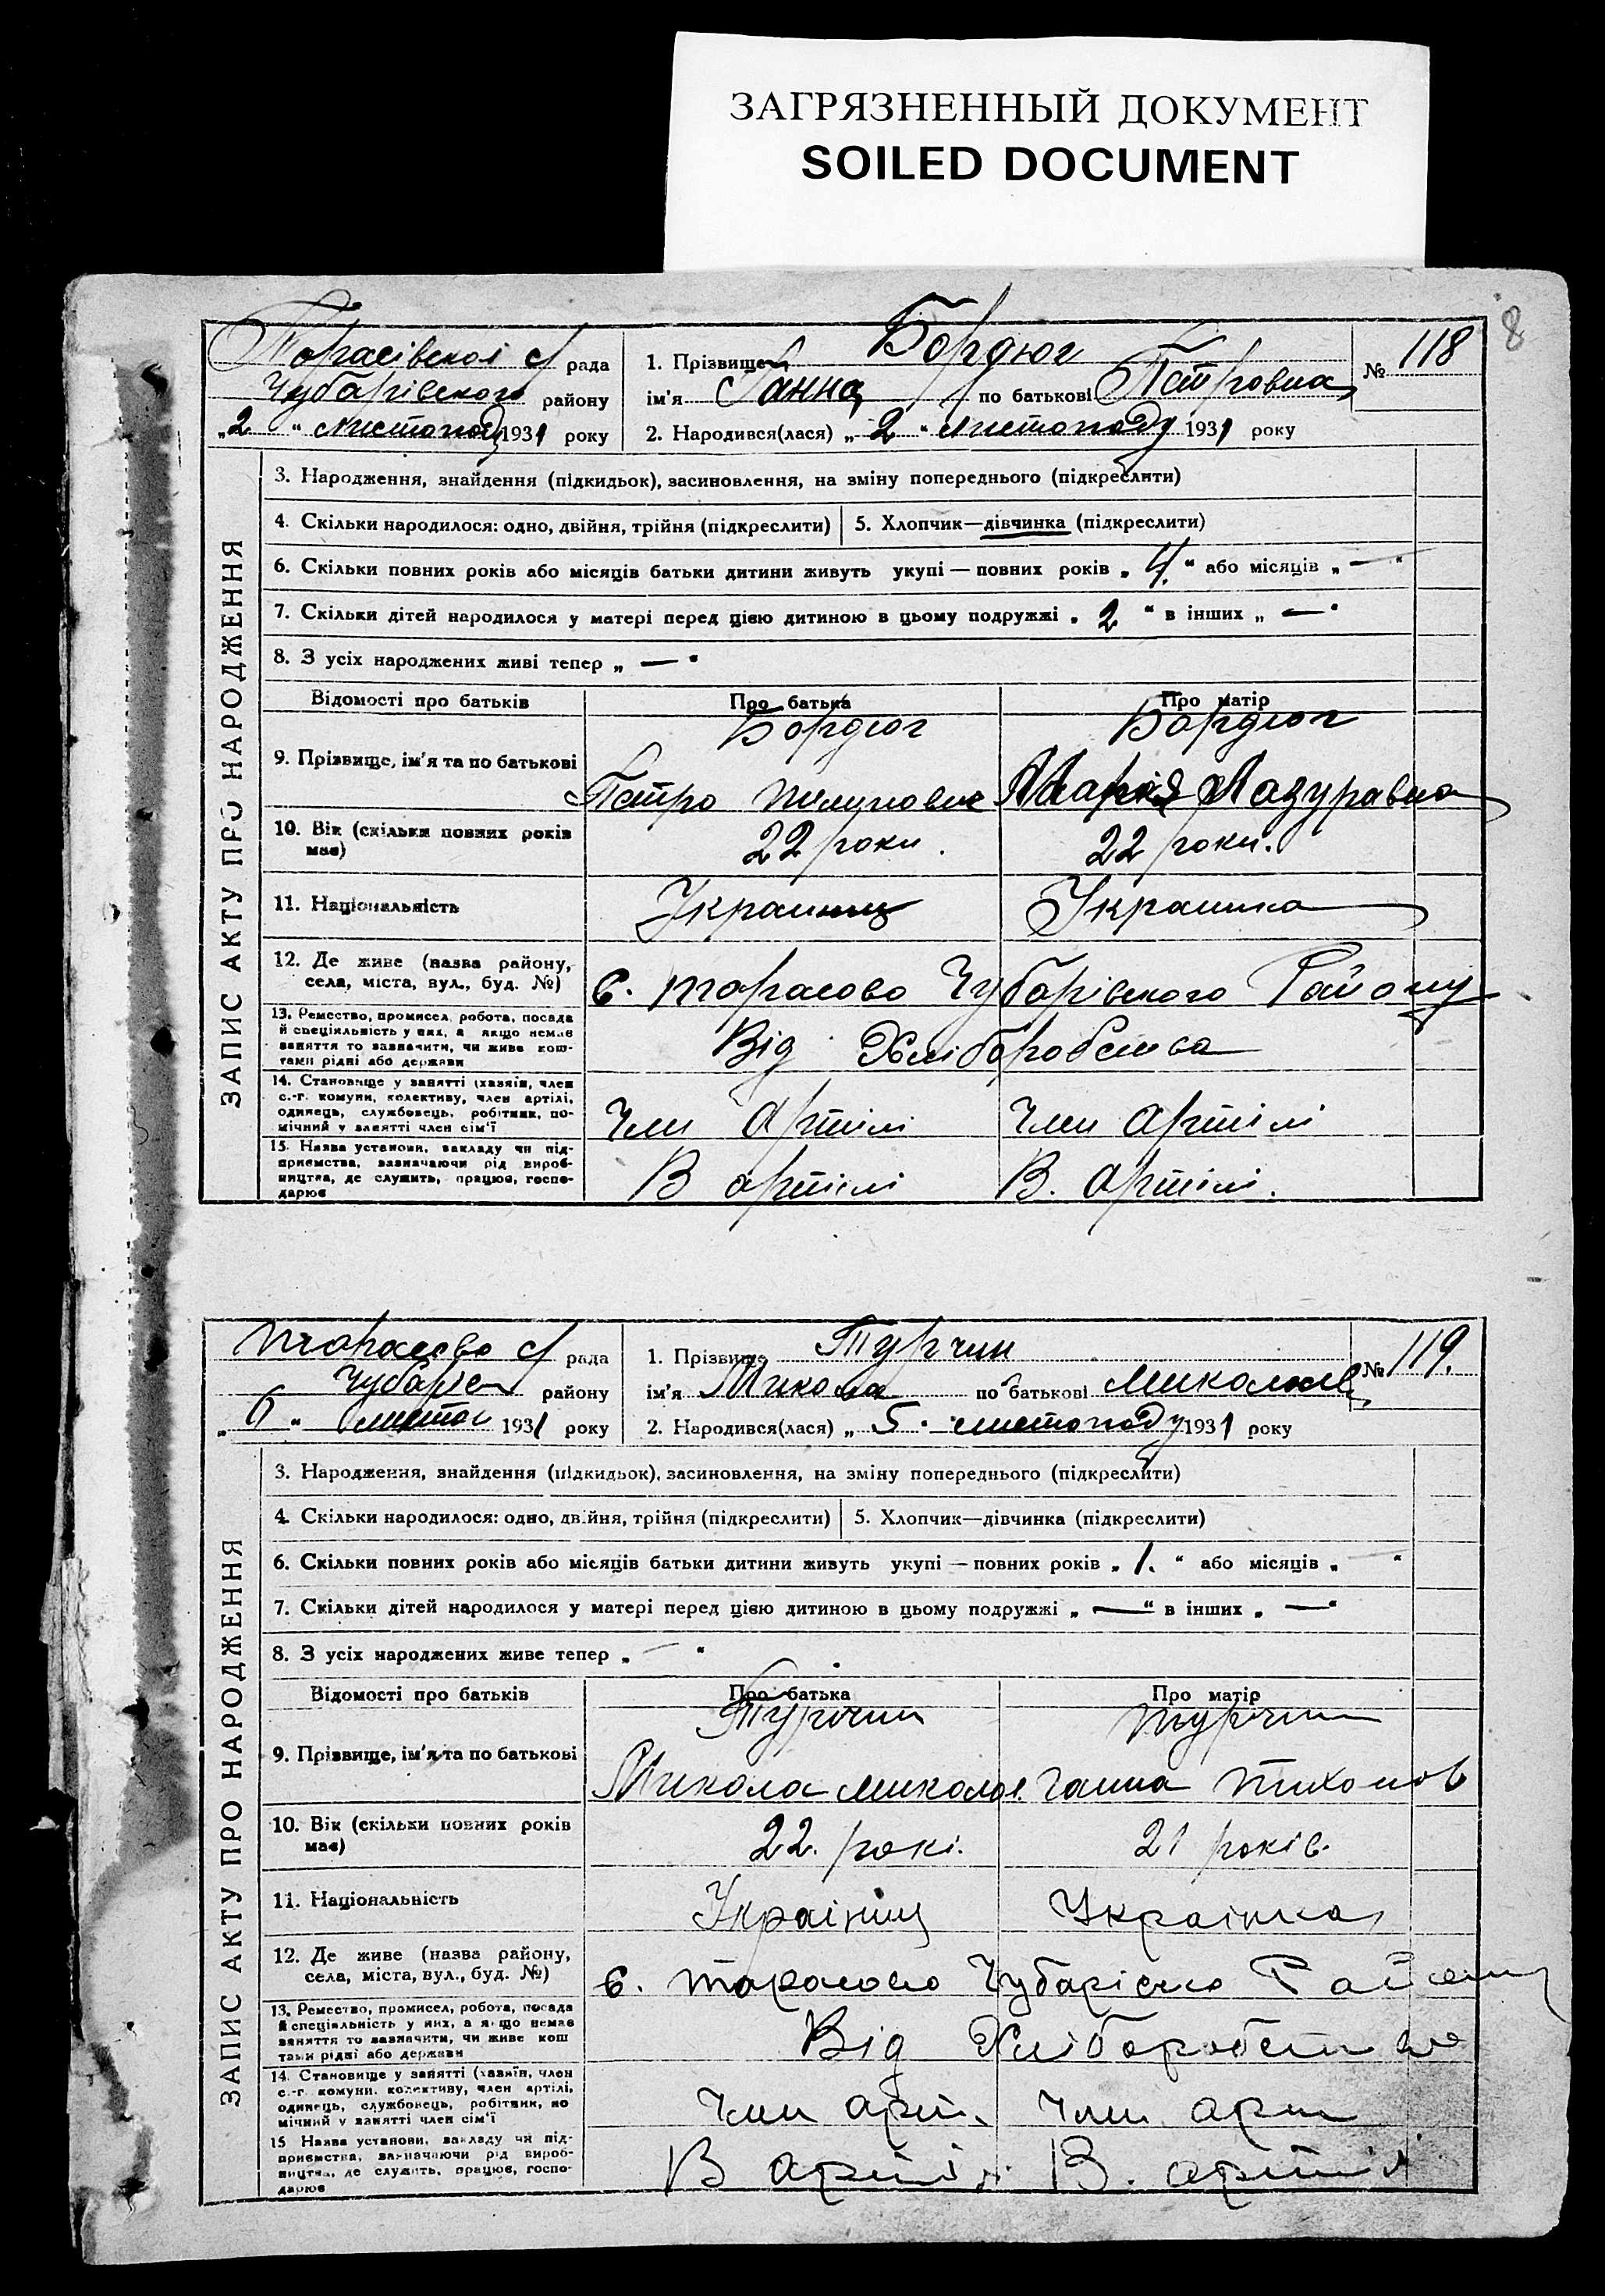 ЗАГРЯЗНЕННЫЙ ДОКУМЕНТ
SOILED DOCUMENT
8
Тарасівской с/ рада
Чубарівского району
„2 “ листопаду 1931 року
1. Прізвище Бордюг
ім'я Ганна по батькові Петровна
№ 118
2. Народився(лася) „ 2 “ листопаду 1931 року
ЗАПИС АКТУ ПРО НАРОДЖЕННЯ
3. Народження, знайдення (підкидьок), засиновлення, на зміну попереднього (підкреслити)
4. Скільки народилося: одно, двійня, трійня (підкреслити) 5. Хлопчик—дівчинка (підкреслити)
6. Скільки повних років або місяців батьки дитини живуть укупі — повних років „ 4. “ або місяців „ — “
7. Скільки дітей народилося у матері перед цією дитиною в цьому подружжі „ 2 “ в інших „ — “
8. З усіх народжених живі тепер „ — “
Відомості про батьків Про батька Про матір
Бордюг Бордюг
9. Прізвище, ім'я та по батькові
Петро Марія Лазуравна
10. Вік (скільки повних років має) 22 роки. 22 роки.
11. Національність Украинец Украинка
12. Де живе (назва району,
села, міста, вул., буд. №) с. Тарасово Чубарівского Району
13. Ремество, промисел, робота, посада
й спеціяльність у них, а якщо немає
заняття то зазначити, чи живе кош-
тами рідні або держави
Від Хліборобства
14. Становище у занятті (хазяїн, член
с.-г. комуни, колективу, член артілі,
одинець, службовець, робітник, по-
мічний у занятті член сім'ї
Член Артілі Член Артілі
15. Назва установи, закладу чи під-
приємства, зазначаючи рід вироб-
ництва, де служить, працює, госпо-
дарює
В артілі В. Артілі.
Тарасово с/ рада
Чубарів району
„ 6 “ листоп 1931 року
1. Прізвище Турчин
ім'я Микола по батькові Миколаєв
№ 119.
2. Народився(лася) „ 5. листопаду 1931 року
ЗАПИС АКТУ ПРО НАРОДЖЕННЯ
3. Народження, знайдення (підкидьок), засиновлення, на зміну попереднього (підкреслити)
4. Скільки народилося: одно, двійня, трійня (підкреслити) 5. Хлопчик—дівчинка (підкреслити)
6. Скільки повних років або місяців батьки дитини живуть укупі — повних років „ 1. “ або місяців „ — “
7. Скільки дітей народилося у матері перед цією дитиною в цьому подружжі „ — “ в інших „ — “
8. З усіх народжених живе тепер „ — “
Відомості про батьків Про батька Про матір
Турчин Турчин
9. Прізвище, ім'я та по батькові
Микола Микола Ганна Тихонов
10. Вік (скільки повних років має) 22. рокі. 21 років.
11. Національність Українец Українка
12. Де живе (назва району,
села, міста, вул., буд. №) с. Тарасово Чубарівско Району
13. Ремество, промисел, робота, посада
й спеціяльність у них, а якщо немає
заняття то зазначити, чи живе кош
тами рідні або держави
Від Хліборобства
14. Становище у занятті (хазяїн, член
с.-г. комуни, колективу, член артілі,
одинець, службовець, робітник, по
мічний у занятті член сім'ї
Член арт. Член арт
15 Назва установи, закладу чи під-
приємства, зазначаючи рід вироб-
ництва, де служить, працює, госпо-
дарює
В артілі В. артілі